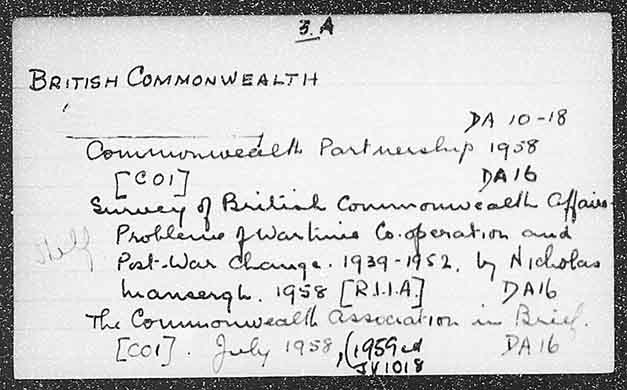 3. A
BRITISH COMMONWEALTH
DA 10-18
Commonwealth Partnership 1958
[COI] DA16
Survey of British Commonwealth Affairs
Problems of Wartime Co-operation and
Shelf
Post-War Change. 1939-1952. by Nicholas
Mansergh. 1958 [R.I.I.A.] DA16
The Commonwealth Association in Brief.
[COI]. July 1958, (1959 ed DA16
JV1018